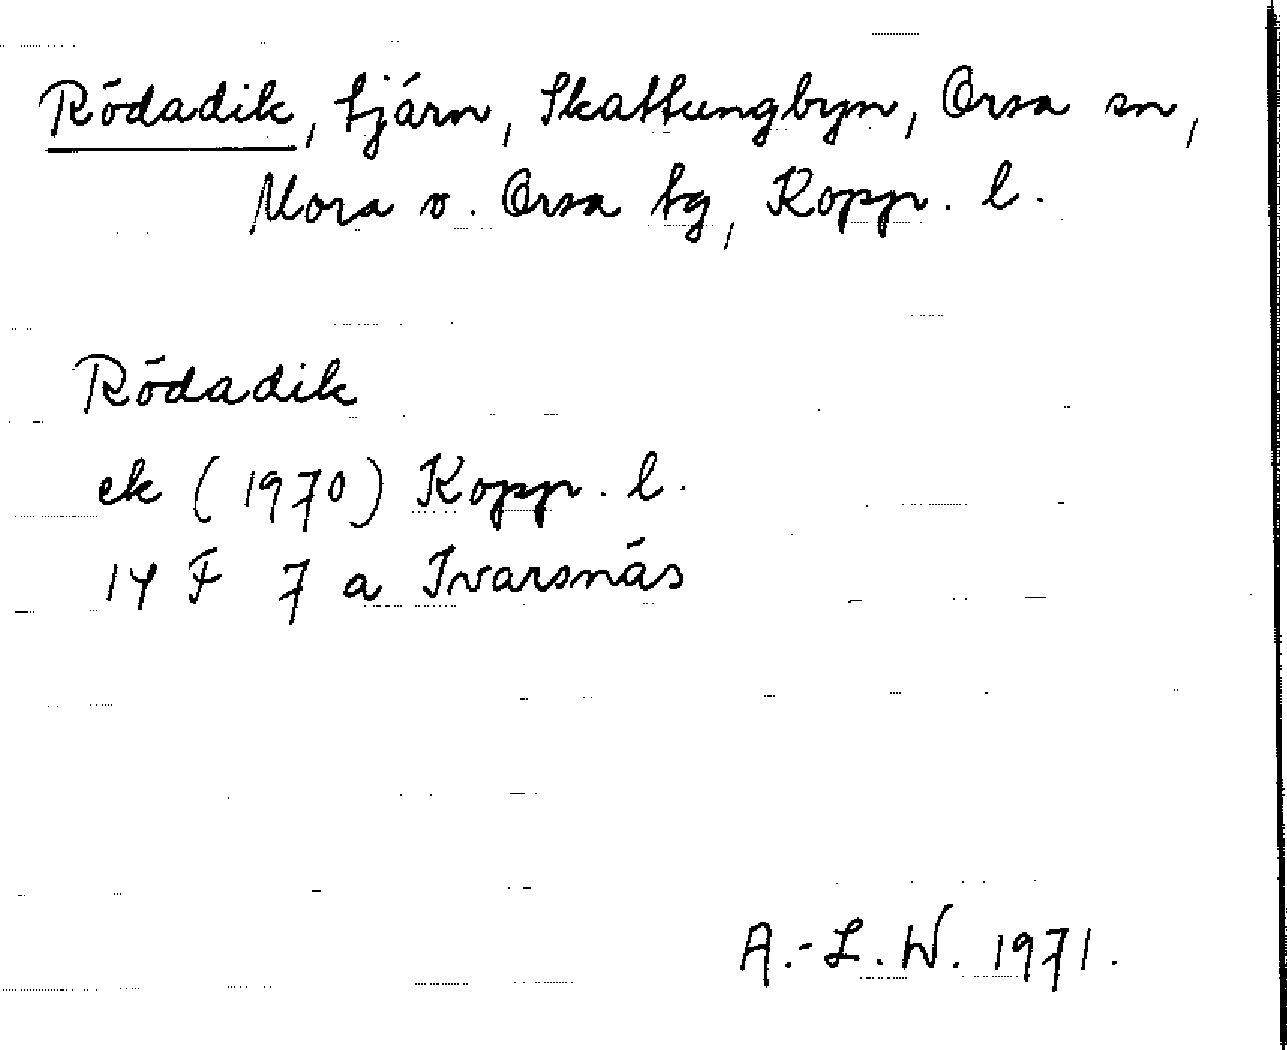 Rödadik, tjärn, Skattungbyn, Orsa sn,
Mora o. Orsa tg, Kopp. l.
Rödadik
ek (1970) Kopp. l.
14 F 7 a Ivarsnäs
A.-L. W. 1971.